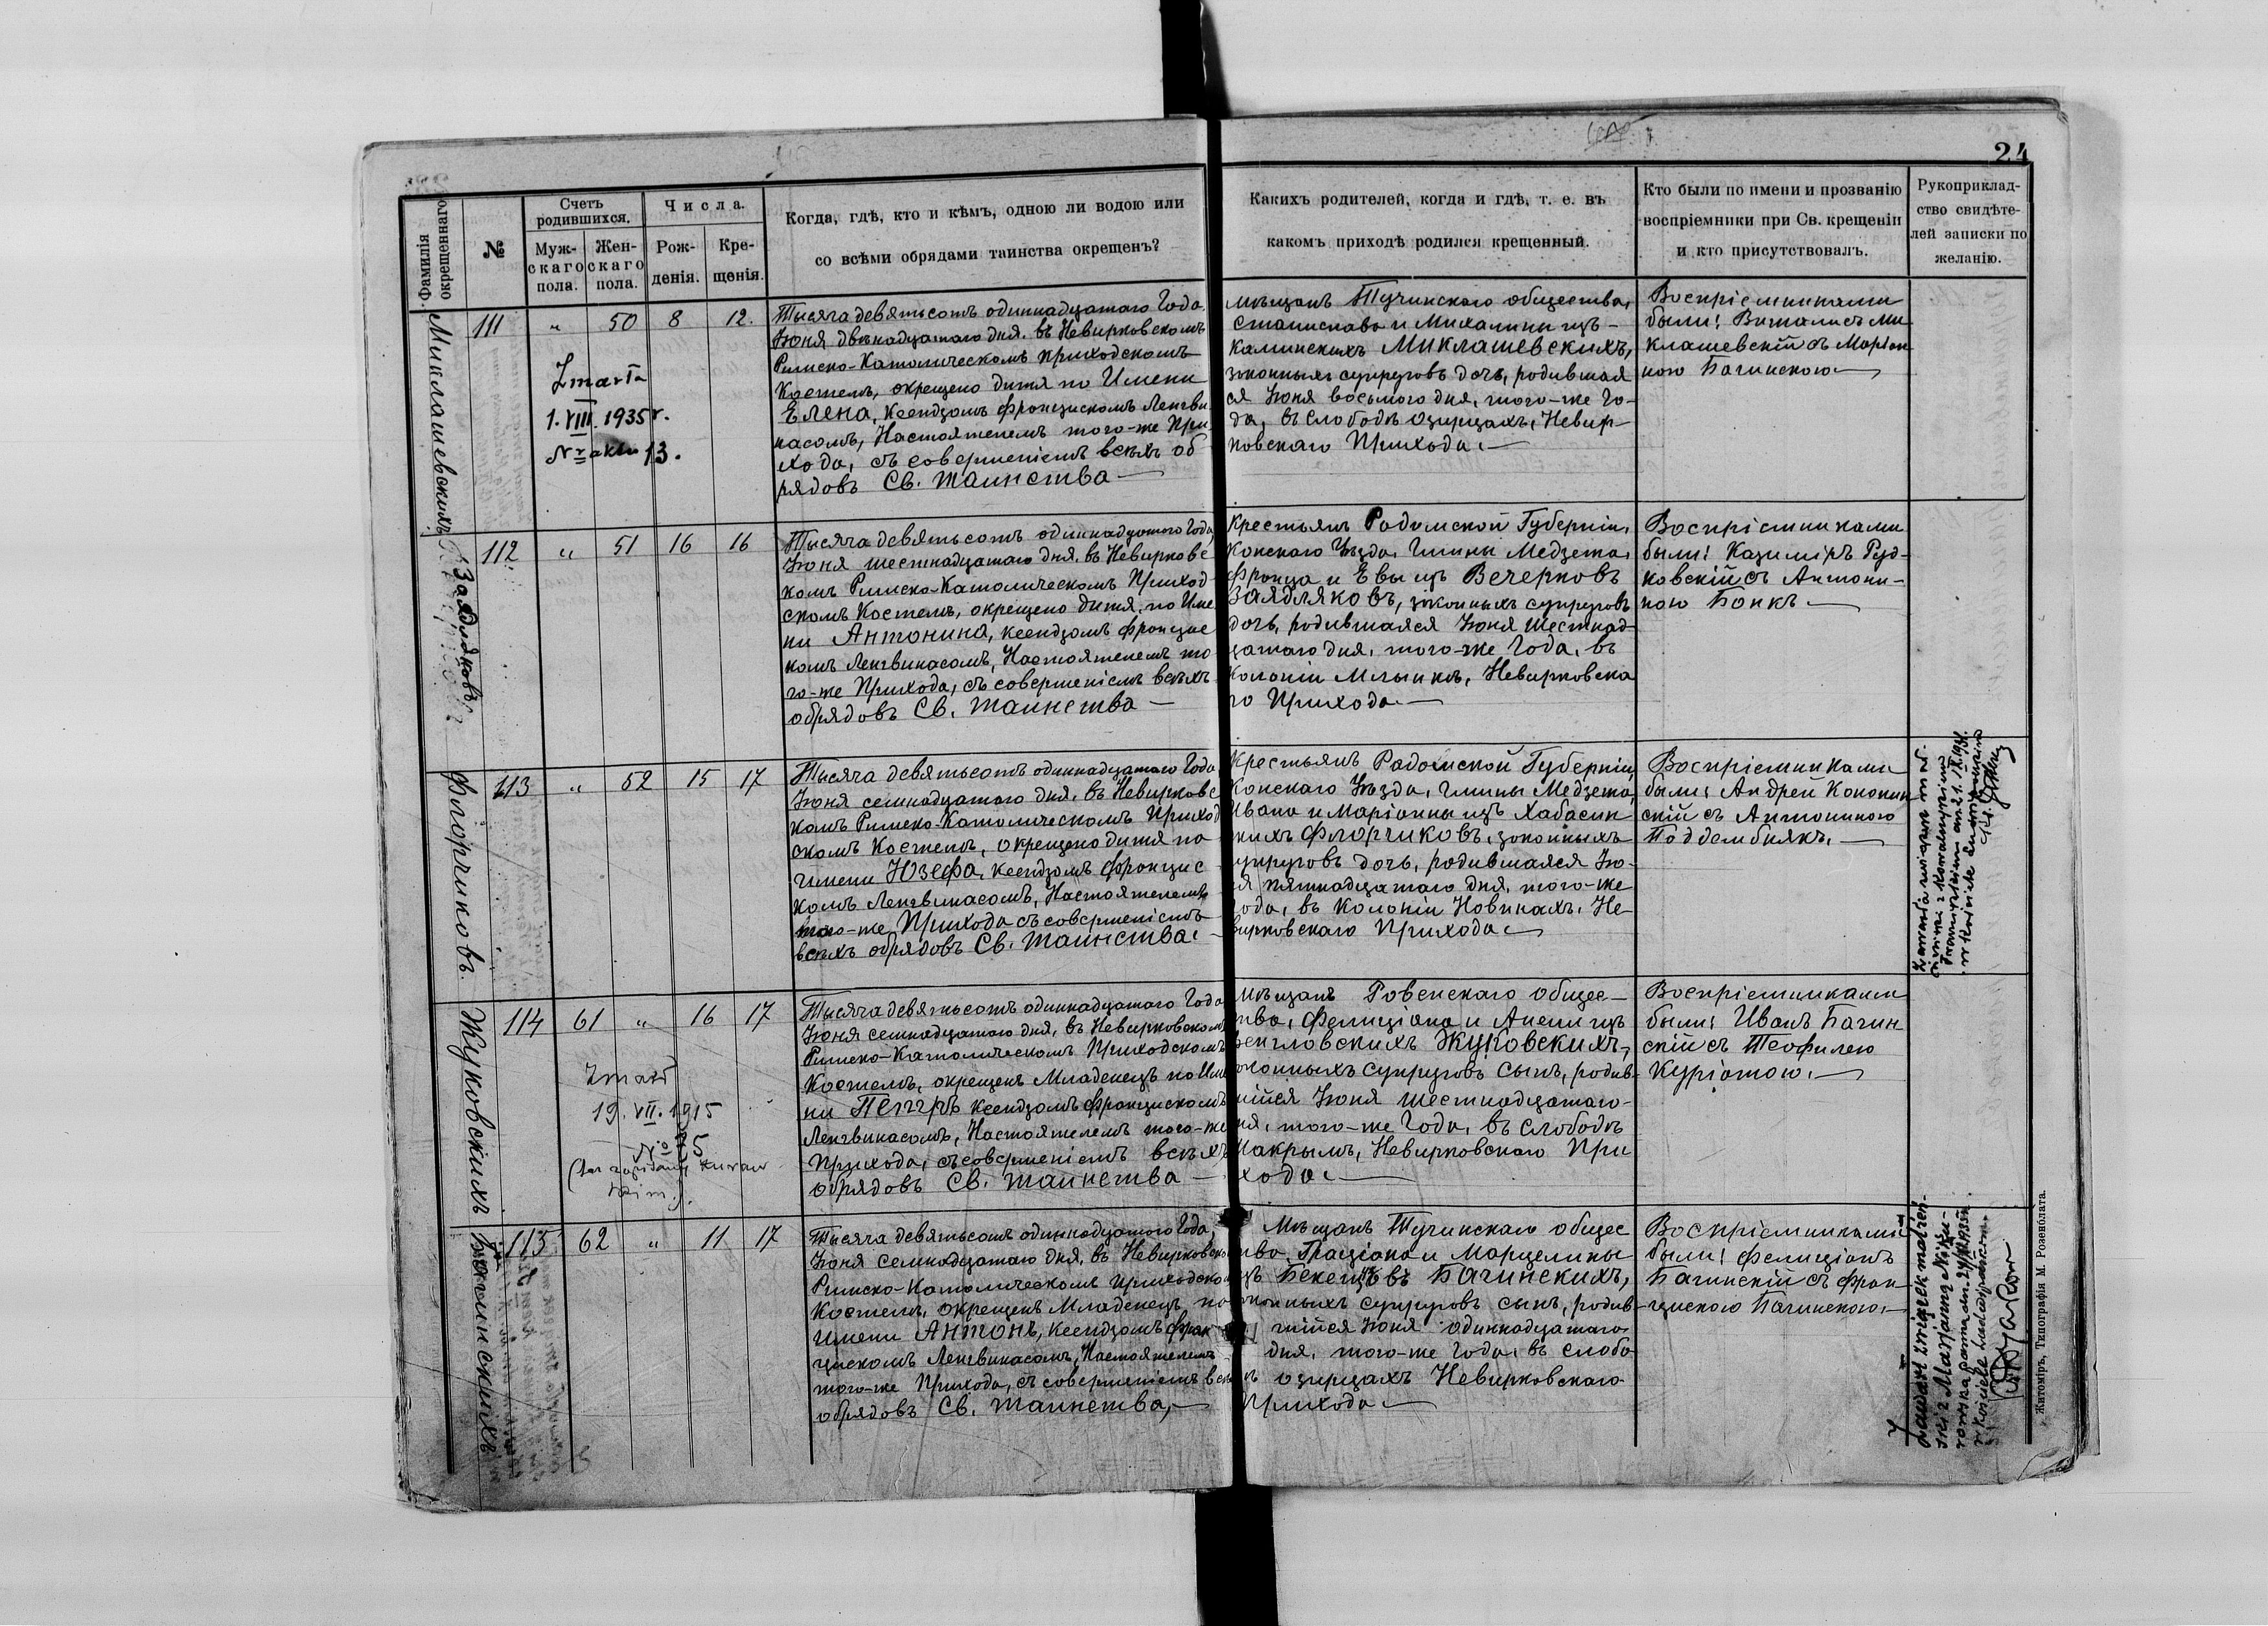 24
Фамилія окрещеннаго
№
Счетъ родившихся.
Муж-
скаго
пола.
Жен-
скаго
пола.
Числа.
Рож-
денія.
Кре-
щенія.
Когда, гдѣ, кто и кѣмъ, одною ли водою или
со всѣми обрядами таинства окрещенъ?
Какихъ родителей, когда и гдѣ, т. е. въ
какомъ приходѣ родился крещенный.
Кто были по имени и прозванію
воспріемники при Св. крещеніи
и кто присутствовалъ.
Рукоприклад-
ство свидѣте-
лей записки по
желанію.
Миклашевскихъ
111 „ 50 8 12.
Zmarła
1. VIII. 1935 r.
Nr aktu 13.
Тысяча девятьсотъ одиннадцатаго Года
Іюня двѣнадцатаго дня. въ Невирковскомъ
Римско-Католическомъ приходскомъ
Костелѣ, окрещено дитя по Имени
Елена, Ксендзомъ Францискомъ Ленгви
касомъ, Настоятелемъ того-же При
хода, съ совершеніемъ всѣхъ об
рядовъ Св. Таинства —
мѣщанъ Тучинскаго общества,
Станислава и Михалины изъ
Каминскихъ Миклашевскихъ,
законныхъ супруговъ дочь, родившая
ся Іюня восьмого дня, того-же Го-
да, въ слободѣ Озирцахъ, Невир-
ковскаго Прихода. —
Воспріемниками
были: Виталисъ Ми
клашевскій съ Маріан
ною Багинскою —
Заядляковъ
112 „ 51 16 16
Тысяча девятьсотъ одиннадцатаго Года
Іюня шестнадцатаго дня. въ Невирковс
комъ Римско-Католическомъ Приход
скомъ Костелѣ, окрещено дитя, по Име
ни Антонина, Ксендзомъ Францис
комъ Ленгвикасомъ, Настоятелемъ то
го-же Прихода, съ совершеніемъ всѣхъ
обрядовъ Св. Таинства —
Крестьянъ Радомской Губерніи,
Конскаго Уѣзда, Гмины Медзежа,
Франца и Евы изъ Вечерковъ
Заядляковъ, законныхъ супруговъ
дочь, родившаяся Іюня шестнад-
цатаго дня, того-же Года, въ
Колоніи Млынкѣ, Невирковска
го Прихода —
Воспріемниками
были: Казиміръ Руд-
ковскій съ Антони-
ною Бонкъ —
Флорчиковъ.
113 „ 52 15 17
Тысяча девятьсотъ одиннадцатаго Года
Іюня семнадцатаго дня, въ Невирковс
комъ Римско-Католическомъ Приход
скомъ Костелѣ, окрещено дитя по
имени Юзефа, Ксендзомъ Францис
комъ Ленгвикасомъ, Настоятелемъ
того-же Прихода съ совершеніемъ
всѣхъ обрядовъ Св. Таинства. —
Крестьянъ Радомской Губерніи,
Конскаго Уѣзда, Гмины Медзежа,
Ивана и Маріанны изъ Хабасин
кихъ Флорчиковъ, законныхъ
упруговъ дочь, родившаяся Ію-
я пятнадцатаго дня, того-же
ода, въ Колоніи Новинахъ, Не-
вирковскаго Прихода —
Воспріемниками
были: Андрей Кононин
скій съ Антониною
Поддембнякъ. —
Жуковскихъ
114 61 „ 16 17
Zmarł
19. VII. 1915
№ 5
Тысяча девятьсотъ одиннадцатаго Года
Іюня семнадцатаго дня, въ Невирковскомъ
Римско-Католическомъ Приходскомъ
Костелѣ, окрещенъ Младенецъ по Име
ни Петръ Ксендзомъ Францискомъ
Ленгвикасомъ, Настоятелемъ того-же
Прихода, съ совершеніемъ всѣхъ
обрядовъ Св. Таинства —
мѣщанъ Ровенскаго общес-
тва, Фелиціана и Анели изъ
Венгловскихъ Жуковскихъ,
аконныхъ супруговъ сынъ, родив-
шійся Іюня шестнадцатаго
ня, того-же Года, въ слободѣ
Макрымъ, Невирковскаго При
хода. —
Воспріемниками
были: Иванъ Багин
скій съ Теофилею
Куріатою. —
Багинскихъ
115 62 „ 11 17
Тысяча девятьсотъ одиннадцатаго Года
Іюня семнадцатаго дня, въ Невирковско
Римско-Католическомъ Приходско
Костелѣ, окрещенъ Младенецъ по
имени Антонъ, Ксендзомъ Фран
цискомъ Ленгвикасомъ, Настоятелемъ
того-же Прихода, съ совершеніемъ всѣ
обрядовъ Св. Таинства, —
Мѣщанъ Тучинскаго общес
тва, Граціана и Марцелины
изъ Бекешовъ Багинскихъ,
аконныхъ супруговъ сынъ, родив-
шійся Іюня одиннадцатаго
дня, того-же Года, въ слобо
ѣ Озирцахъ Невирковскаго
Прихода —
Воспріемниками
были: Фелиціанъ
Багинскій съ Фран-
цискою Багинскою. —
Zawarł związek małżeń-
ski z Marjanną
Житоміръ, Типографія М. Розенблата.